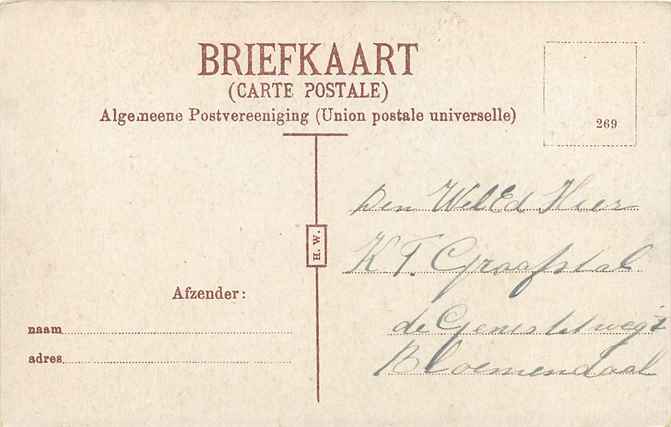 BRIEFKAART
(CARTE POSTALE)
Algemeene Postvereeniging (Union postale universelle)
269
H. W.
Den WelEd Heer
K T. Graafstal
de Genestetweg
Bloemendaal
Afzender:
naam
adres